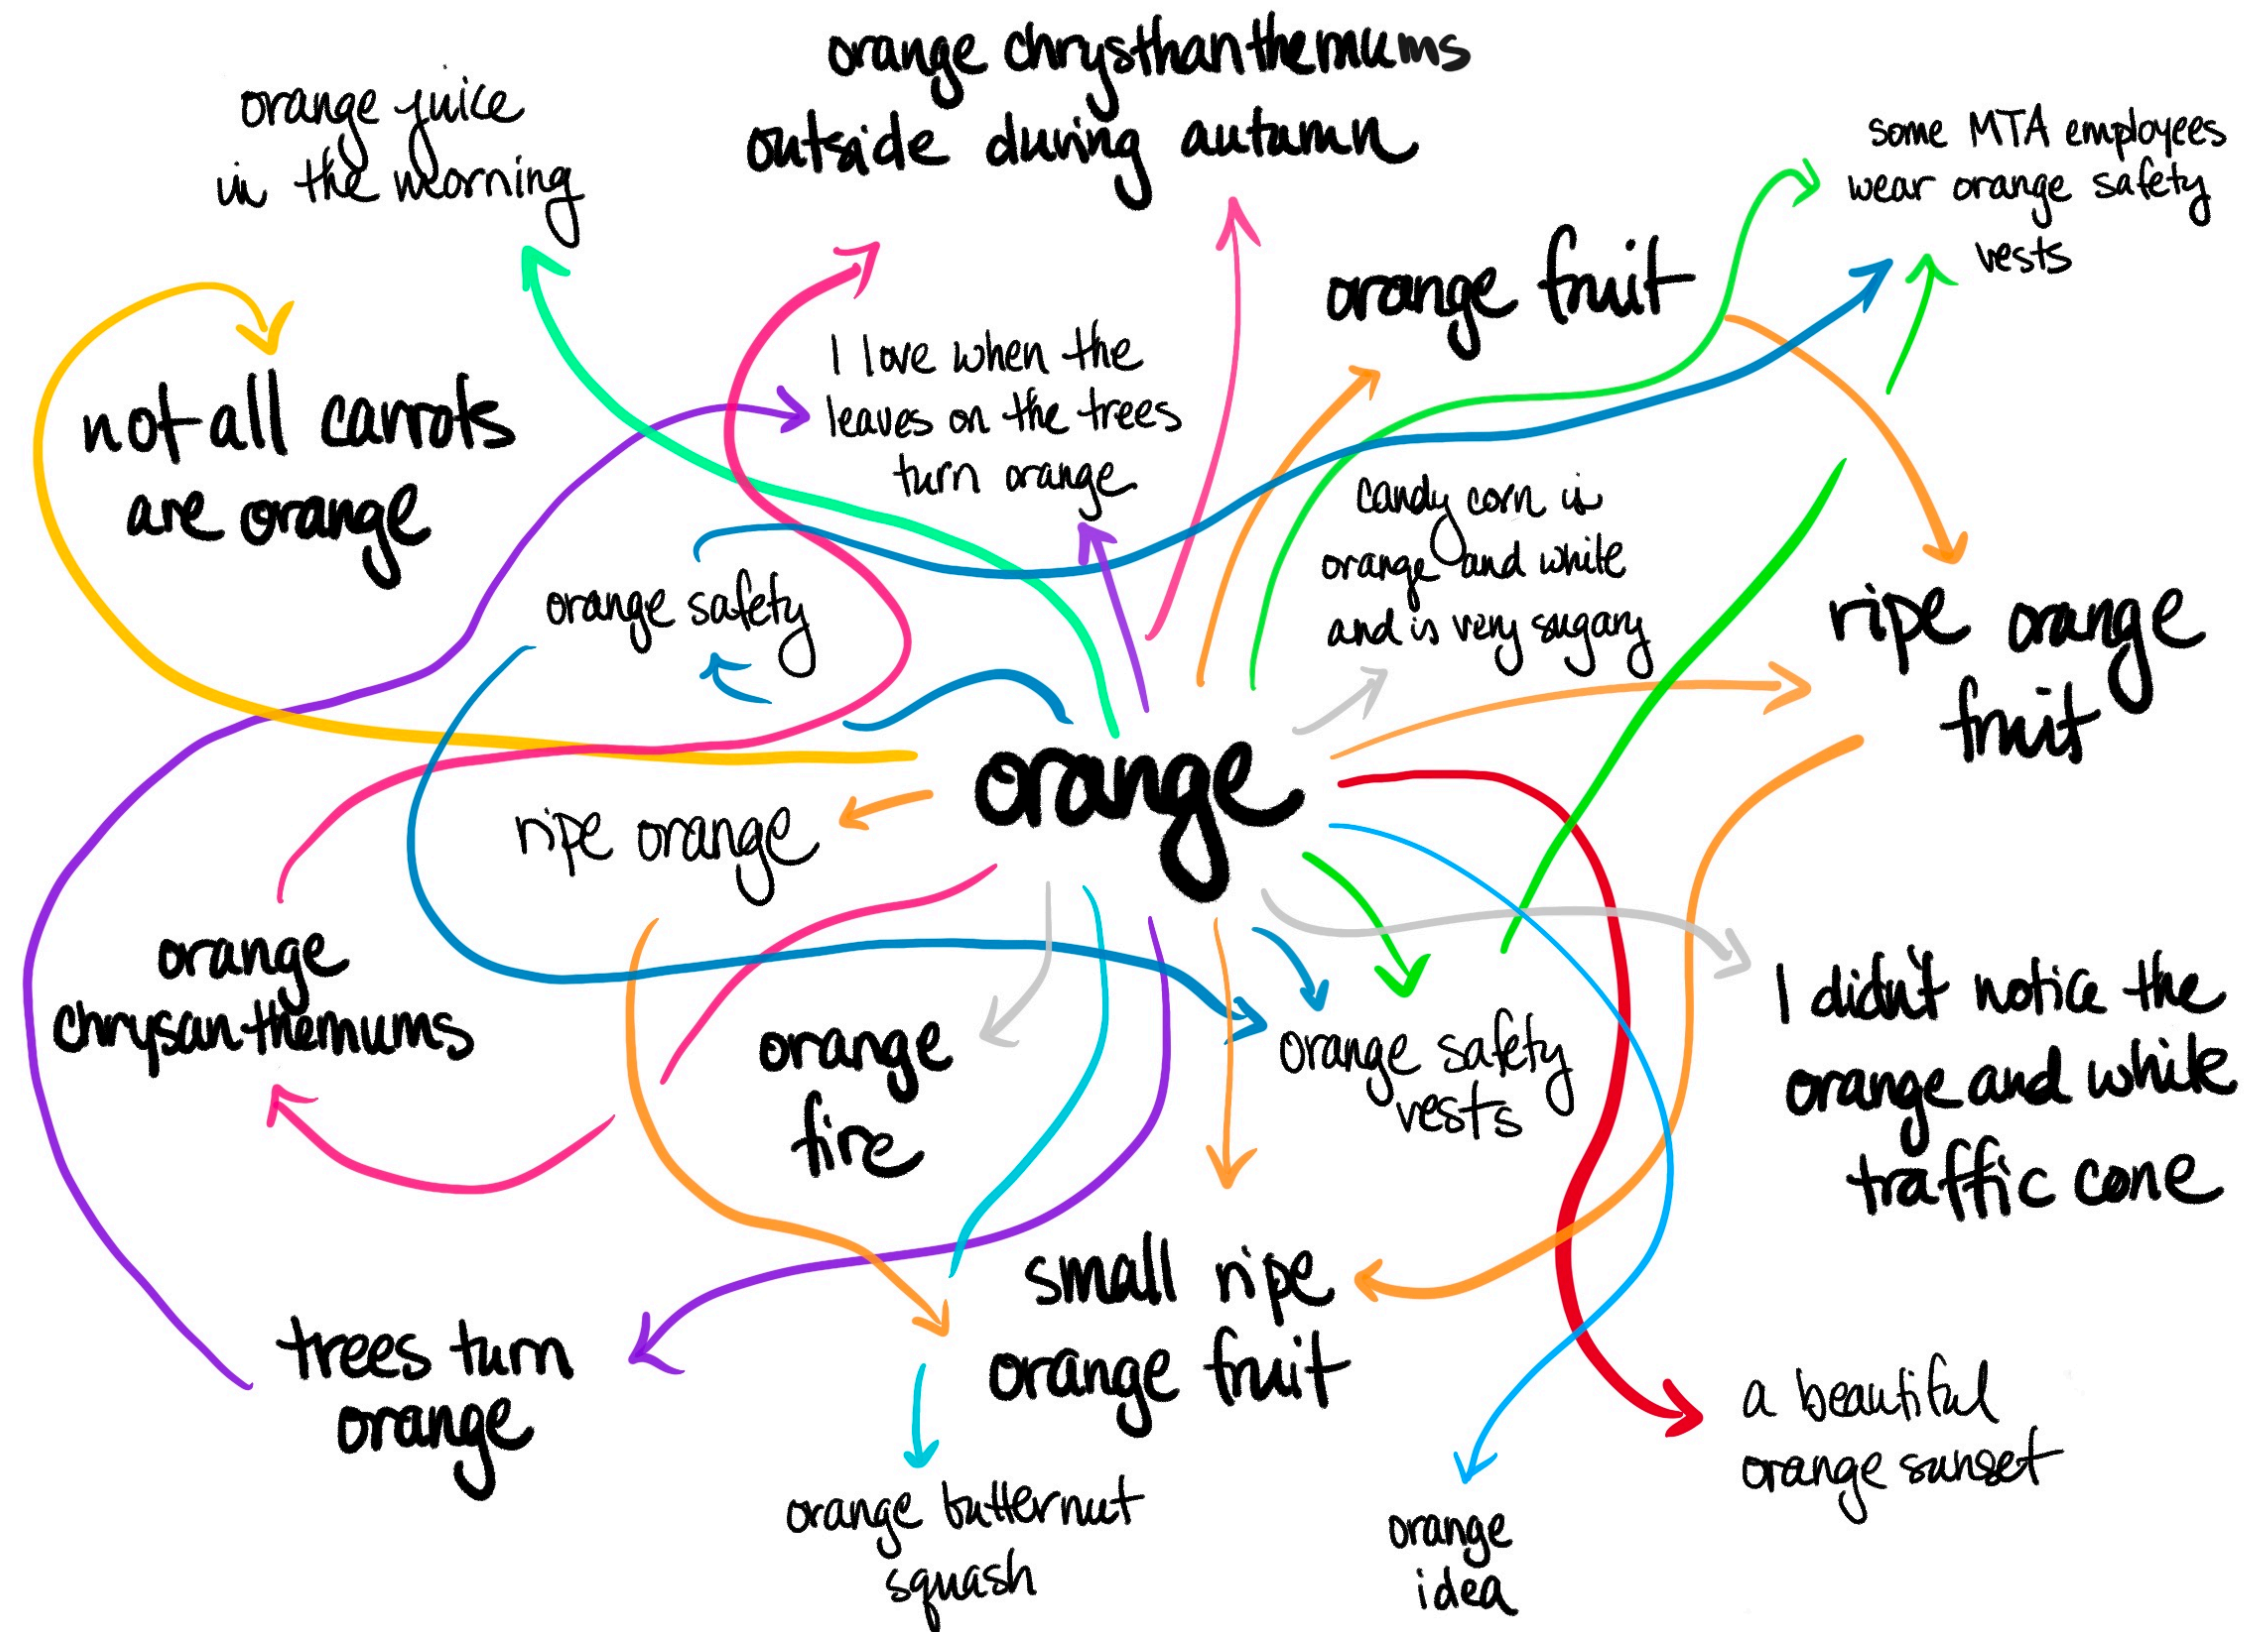 orange chrysthanthemums
outside during autumn
orange juice
in the morning
some MTA employees
wear orange safety
vests
orange fruit
I love when the
leaves on the trees
turn orange
not all carrots
are orange
candy corn is
orange and white
and is very sugary
orange safety
ripe orange
fruit
orange
ripe orange
orange
chrysanthemums
orange
fire
orange safety
vests
I didn't notice the
orange and white
traffic cone
small ripe
orange fruit
trees turn
orange
a beautiful
orange sunset
orange butternut
squash
orange
idea